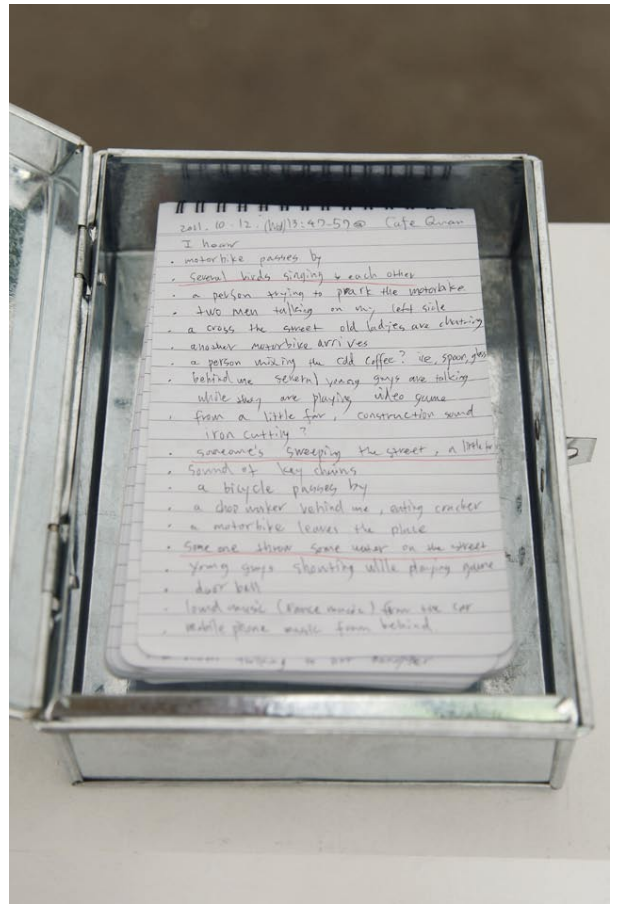 2021. 10. 12. 13:47-57@ Cafe Quan
I hear
. motorbike passes by
. several birds singing to each other
. a person trying to park the motorbike
. two men talking on my left side
. a cross the street old ladies are chatting
. another motorbike arrives
. a person mixing the cold coffee? ie, spoon, glass
. behind me several young guys are talking
while they are playing video game
. from a little far, construction sound
iron cutting?
. someone's sweeping the street, a little
. sound of key chains
. a bicycle passes by
. a maker behind me, eating cracker
. a motorbike leaves the place
. some one throw some water on the street
. young guys shouting while playing game
. door bell
. loud music (dance music) from the car
. mobile phone music from behind